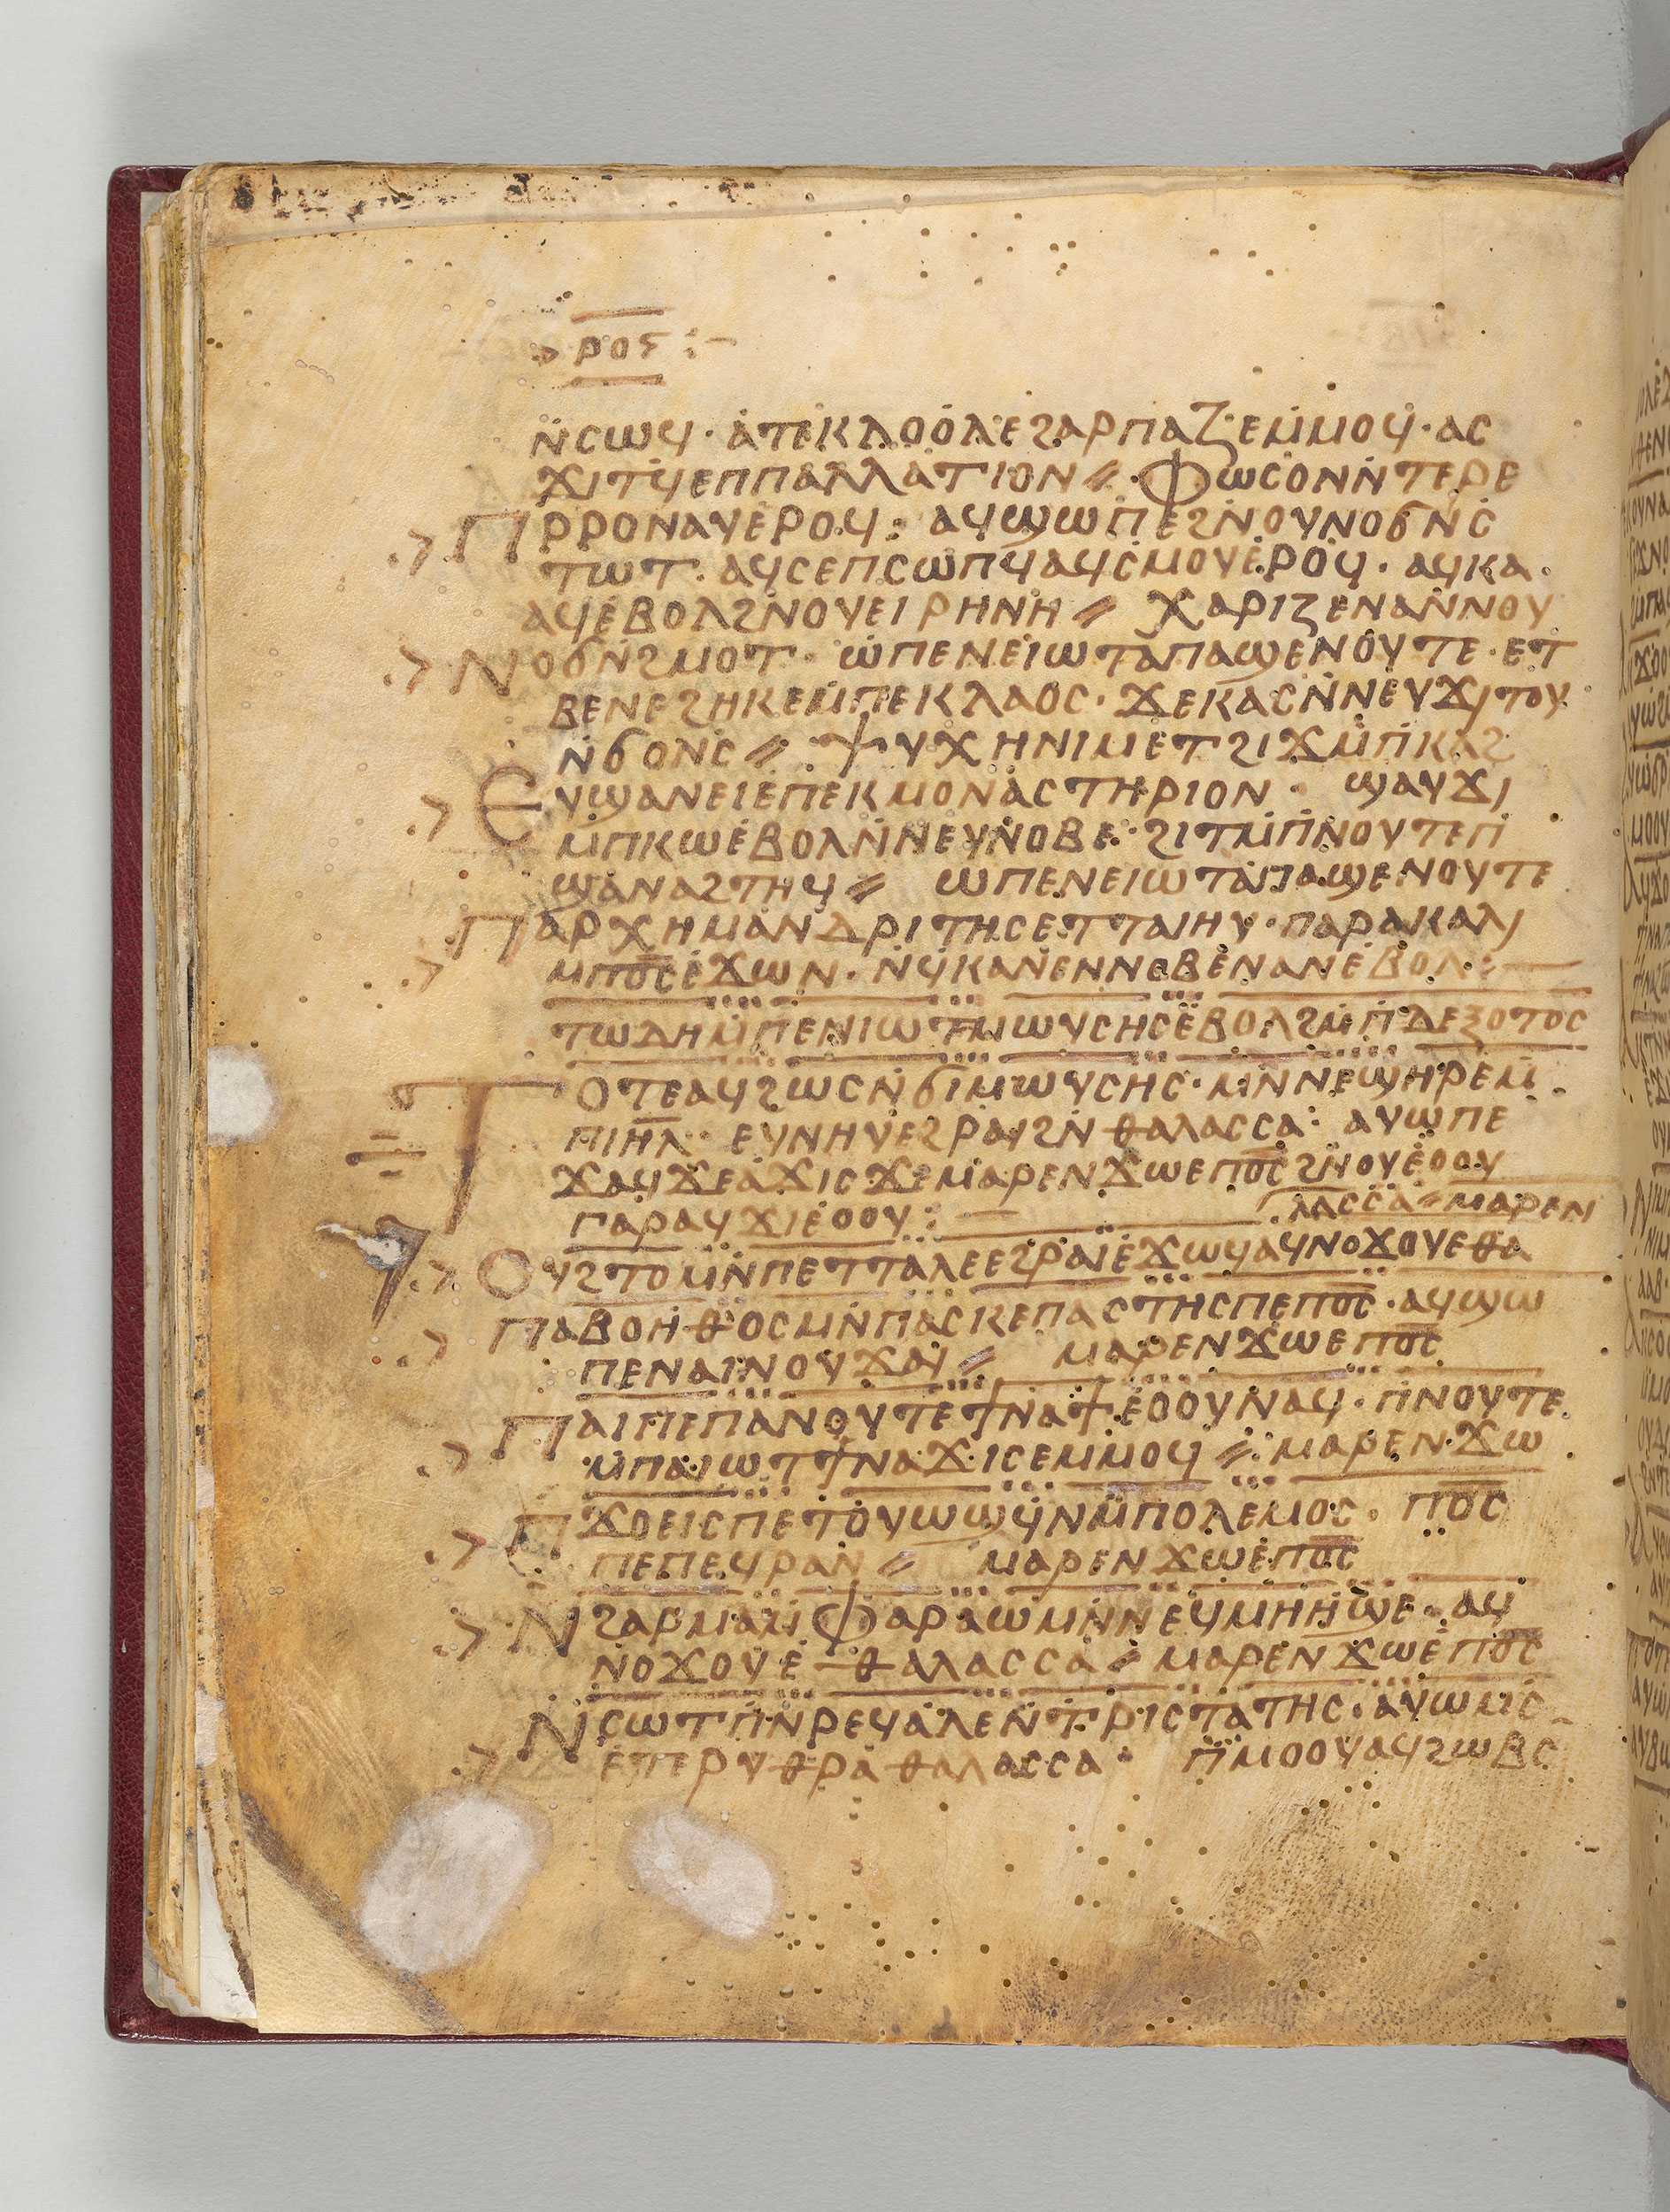 ⲣⲟⲋ
ⲛ̇ⲥⲱϥ · ⲁ̇ⲡⲉⲕⲗⲟⲟ̇ⲗⲉϩⲁⲣⲡⲁⲍⲉⲙ̇ⲙⲟϥ · ⲁⲥ
ϫⲓⲧϥ̇ⲉⲡⲡⲁⲗⲗⲁⲧⲓⲟⲛ ⫽ ⲫⲱⲥⲟⲛⲛ̇ⲧⲉⲣⲉ
ⲡⲣⲣⲟⲛⲁⲩⲉ̇ⲣⲟϥ : ⲁϥϣⲱⲡⲉϩⲛ̇ⲟⲩⲛⲟϭⲛ̇ⲥ
ⲧⲱⲧ · ⲁϥⲥⲉⲡⲥⲱⲡϥ̇ⲁϥⲥⲙⲟⲩⲉ̇ⲣⲟϥ · ⲁϥⲕⲁ
ⲁϥⲉ̇ⲃⲟⲗϩⲛ̇ⲟⲩⲉⲓⲣⲏⲛⲏ ⫽ ⲭⲁⲣⲓⲍⲉⲛⲁⲛ̇ⲛⲟⲩ
ⲛⲟϭⲛ̇ϩⲙⲟⲧ · ⲱ̇ⲡⲉⲛⲉⲓⲱⲧⲁⲡⲁϣⲉⲛⲟⲩⲧⲉ · ⲉⲧ
ⲃⲉⲛⲉϩⲏⲕⲉⲙ̇ⲡⲉⲕⲗⲁⲟⲥ · ϫⲉⲕⲁⲥⲛ̇ⲛⲉⲩϫⲓⲧⲟⲩ
ⲛ̇ϭⲟⲛⲥ̇ ⫽ ⲯⲩⲭⲏⲛⲓⲙⲉⲧϩⲓϫⲙ̇ⲡⲕⲁϩ
ⲉⲩϣⲁⲛⲉⲓⲉ̇ⲡⲉⲕⲙⲟⲛⲁⲥⲧⲏⲣⲓⲟⲛ · ϣⲁⲩϫⲓ
ⲙ̇ⲡⲕⲱⲉ̇ⲃⲟⲗⲛ̇ⲛⲉⲩⲛⲟⲃⲉ · ϩⲓⲧⲙ̇ⲡ̇ⲛⲟⲩⲧⲉⲡ̇
ϣⲁⲛⲁϩⲧⲏϥ ⫽ ⲱⲡⲉⲛⲉⲓⲱⲧⲁⲡⲁϣⲉⲛⲟⲩⲧⲉ
ⲡⲁⲣⲭⲏⲙⲁⲛⲇⲣⲓⲧⲏⲥⲉⲧⲧⲁⲓⲏⲩ · ⲡⲁⲣⲁⲕⲁⲗⲓ
ⲙ̇ⲡⲟ̅ⲥ̅ⲉ̇ϫⲱⲛ · ⲛϥ̇ⲕⲁⲛⲉⲛⲛⲟⲃⲉⲛⲁⲛⲉ̇ⲃⲟⲗ :
ⲧⲱⲇⲏⲙ̇ⲡⲉⲛⲓⲱⲧⲙⲱⲩⲥⲏⲥⲉ̇ⲃⲟⲗϩⲙ̇ⲡ̇ⲇⲉⲝⲟⲧⲟⲥ
ⲧⲟⲧⲉⲁϥϩⲱⲥⲛ̇ϭⲓⲙⲱⲩⲥⲏⲥ · ⲙⲛ̇ⲛⲉϣⲏⲣⲉⲙ̇
ⲡⲓⲏ̅ⲗ̅ · ⲉⲩⲛⲏⲩⲉϩⲣⲁⲩϩⲛ̇ⲑⲁⲗⲁⲥⲥⲁ · ⲁⲩⲱⲡⲉ
ϫⲁϥϫⲉⲁϫⲓⲥϫⲉⲙⲁⲣⲉⲛϫⲱⲉⲡⲟ̅ⲥ̅ϩⲛ̇ⲟⲩⲉ̇ⲟⲟⲩ
ⲅⲁⲣⲁϥϫⲓⲉ̇ⲟⲟⲩ :
ⲗⲁⲥⲥⲁ ⫽ ⲙⲁⲣⲉⲛ
ⲟⲩϩⲧⲟⲙⲛ̇ⲡⲉⲧⲧⲁⲗⲉⲉϩⲣⲁⲓⲉ̇ϫⲱϥⲁϥⲛⲟϫⲟⲩⲉⲑⲁ
ⲡⲁⲃⲟⲏⲑⲟⲥⲙⲛ̇ⲡⲁⲥⲕⲉⲡⲁⲥⲧⲏⲥⲡⲉⲡⲟ̅ⲥ̅ · ⲁϥϣⲱ
ⲡⲉⲛⲁⲓⲛⲟⲩϫⲁⲓ ⫽ ⲙⲁⲣⲉⲛϫⲱⲉⲡⲟ̅ⲥ̅
ⲡⲁⲓⲡⲉⲡⲁⲛⲟⲩⲧⲉϯⲛⲁϯⲉ̇ⲟⲟⲩⲛⲁϥ · ⲡ̇ⲛⲟⲩⲧⲉ
ⲙ̇ⲡⲁⲓⲱⲧϯⲛⲁϫⲓⲥⲉⲙ̇ⲙⲟϥ ⫽ ⲙⲁⲣⲉⲛϫⲱ
ⲡϫⲟⲉⲓⲥⲡⲉⲧⲟⲩⲱϣϥ̇ⲛⲙ̇ⲡⲟⲗⲉⲙⲟⲥ · ⲡⲟ̅ⲥ̅
ⲡⲉⲡⲉϥⲣⲁⲛ ⫽ ⲙⲁⲣⲉⲛϫⲱⲉ̇ⲡⲟ̅ⲥ̅
ⲛϩⲁⲣⲙⲁⲙ̇ⲫⲁⲣⲁⲱⲙⲛ̇ⲛⲉϥⲙⲏⲏϣⲉ · ⲁϥ
ⲛⲟϫⲟⲩⲉ̇ⲑⲁⲗⲁⲥⲥⲁ ⫽ ⲙⲁⲣⲉⲛϫⲱⲉ̇ⲡⲟ̅ⲥ̅
ⲛ̇ⲥⲱⲧⲡ̇ⲛⲣⲉϥⲁⲗⲉⲛ̇ⲧⲣⲓⲥⲧⲁⲧⲏⲥ · ⲁϥⲱⲙⲥ
ⲉⲡⲉⲣⲩⲑⲣⲁⲑⲁⲗⲁⲥⲥⲁ · ⲡ̇ⲙⲟⲟⲩⲁϥϩⲱⲃⲥ